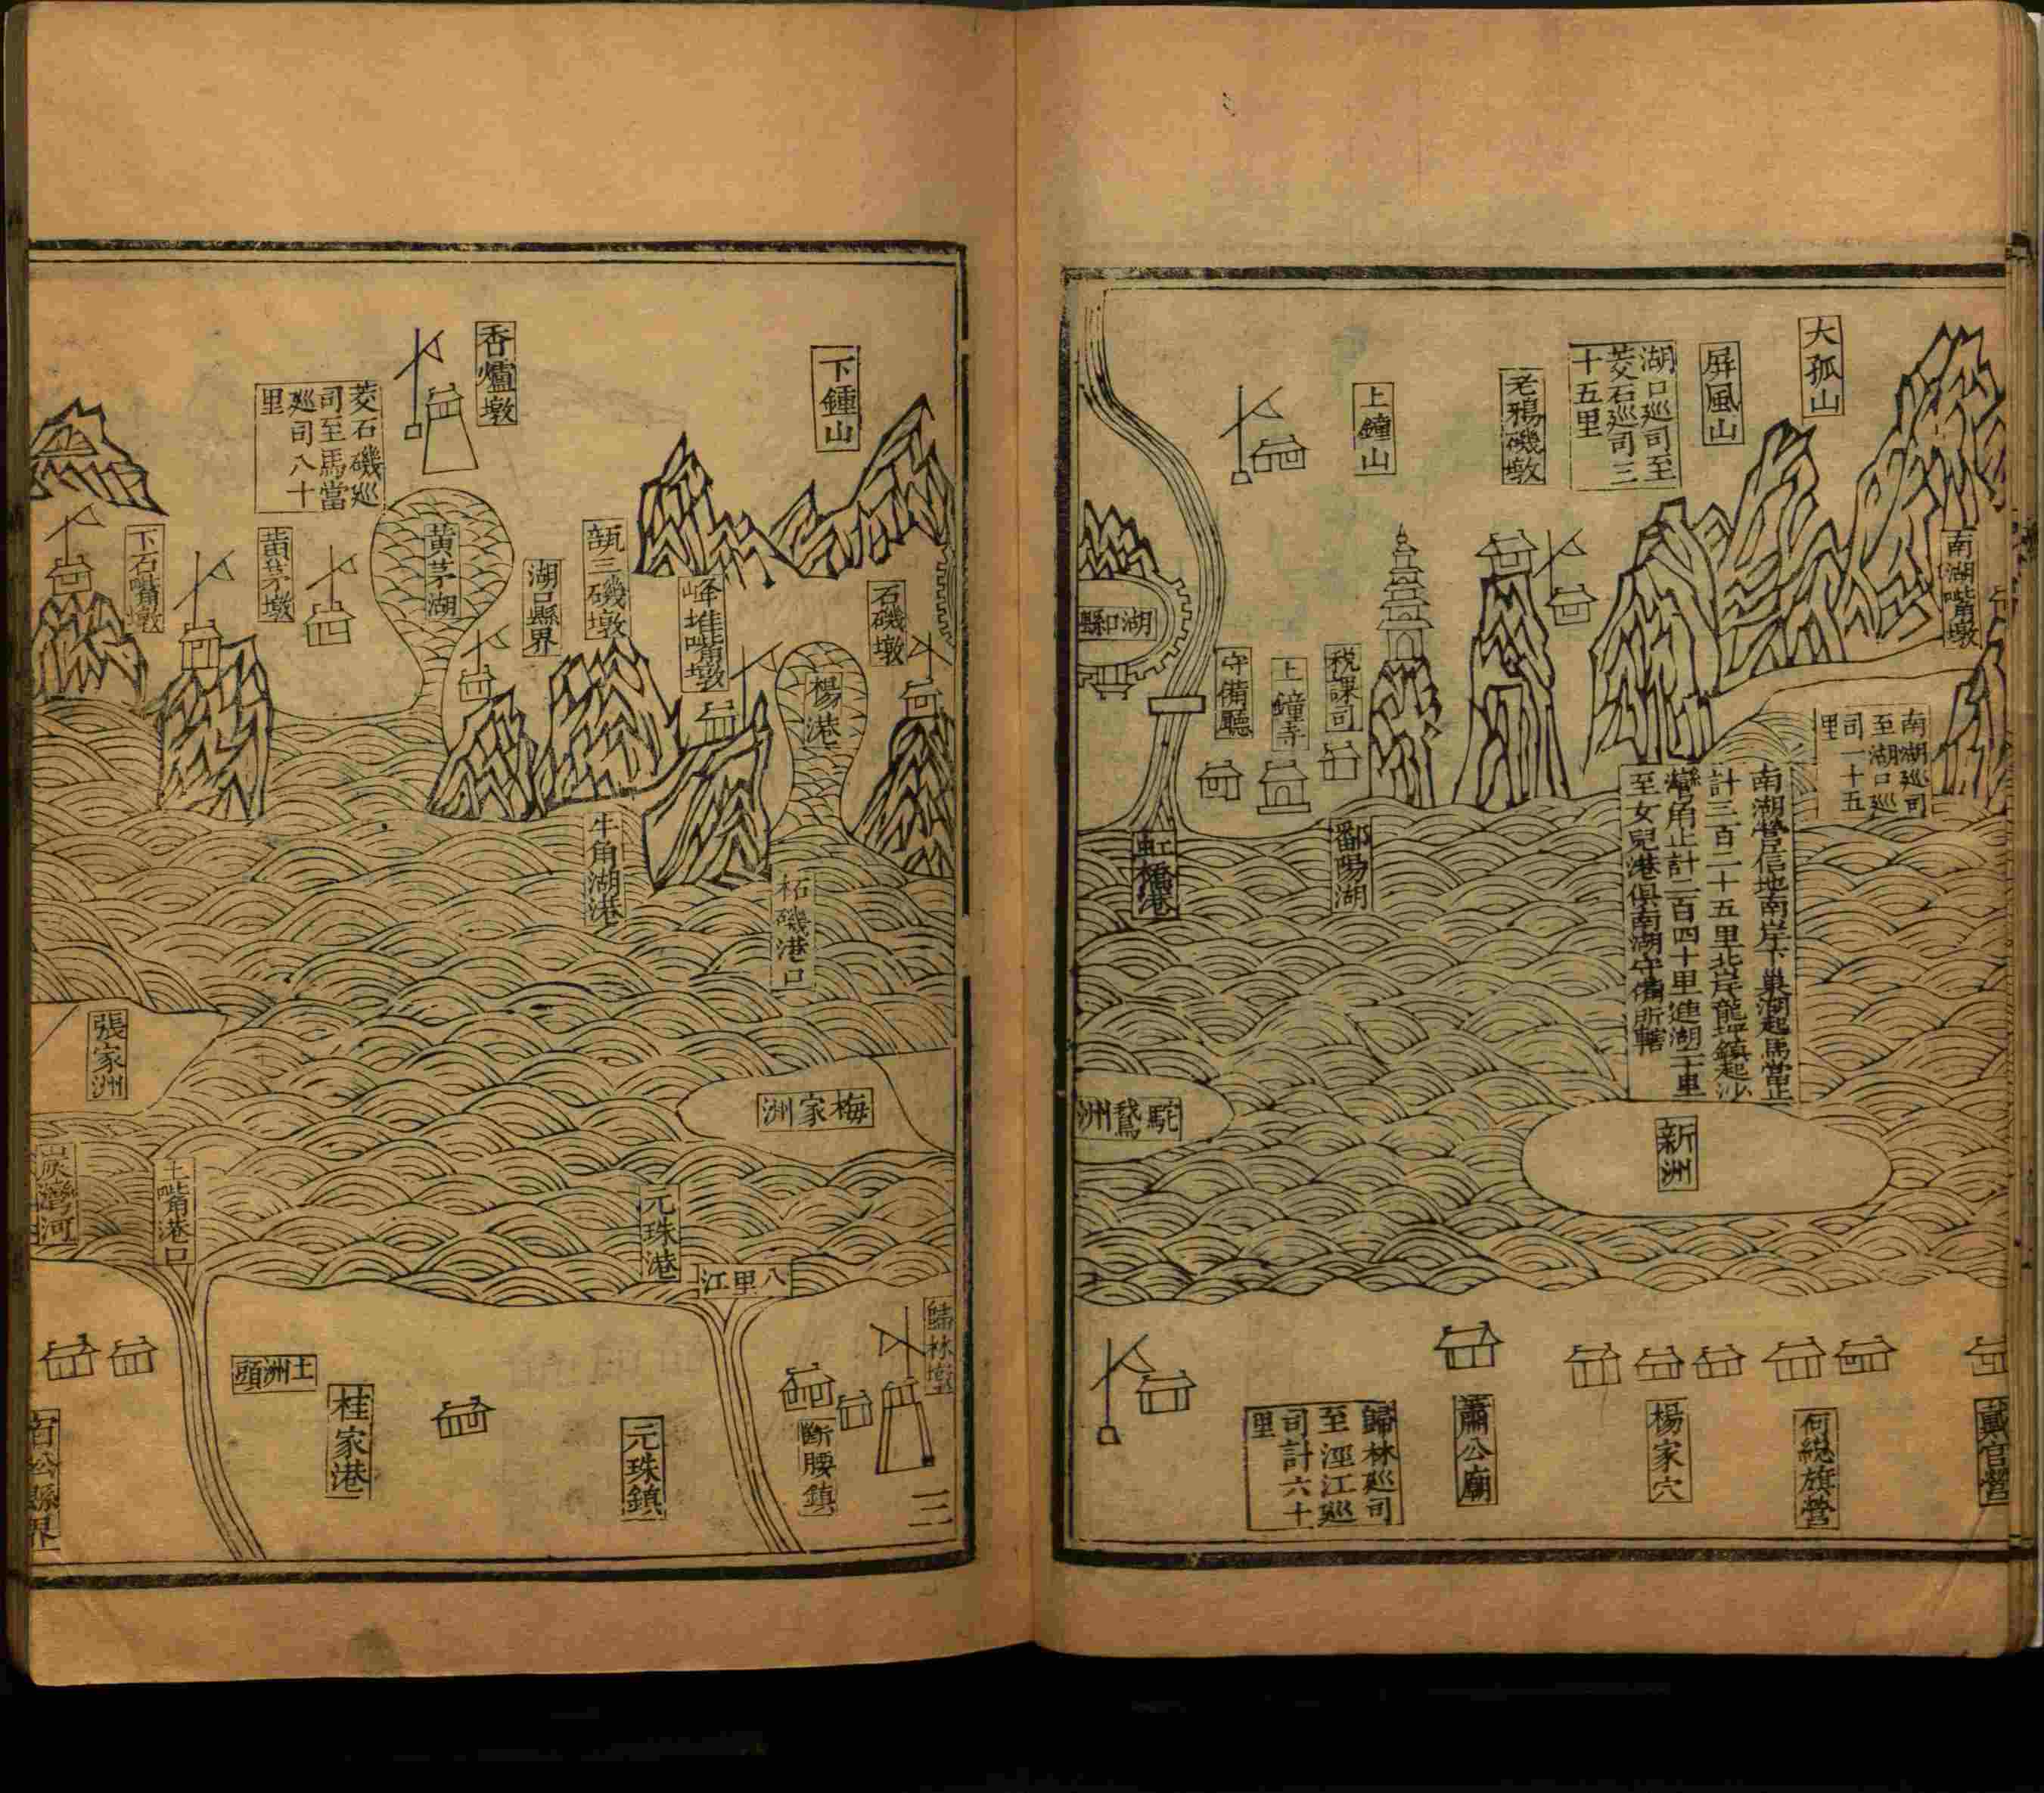 大孤山
屏風山
湖口廵司至
茭石廵司三
十五里
老鴉磯墩
上鐘山
南湖嘴墩
南湖廵司
至湖口廵
司一十五
里
南湖營信地南岸下巢湖起馬當止
計三百二十五里北岸龍坪鎮起沙
灣角止計二百四十里進湖二十里
至女兒港俱南湖守備所轄
湖口縣
守備廳
上鐘寺
稅課司
虹橋港
鄱陽湖
新洲
駝鵞洲
戴官營
何總旗營
楊家穴
蕭公廟
歸林廵司
至涇江廵
司計六十
里
下鍾山
香爐墩
茭石磯廵
司至馬當
廵司八十
里
石磯墩
楊港
峰堆嘴墩
瓿三磯墩
湖口縣界
黄茅湖
黄茅墩
下石嘴墩
柘磯港口
牛角湖港
張家洲
梅家洲
元珠港
八里江
土嘴港口
炭灣河
歸林墩
斷腰鎮
元珠鎮
桂家港
土洲頭
三